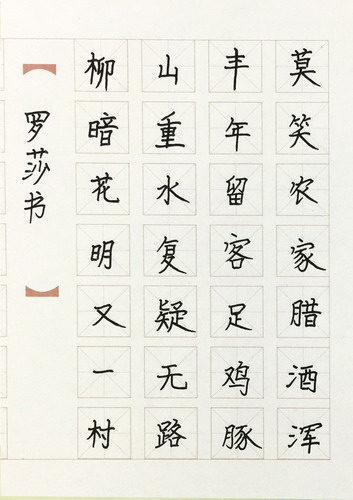 莫笑农家腊酒浑
丰年留客足鸡豚
山重水复疑无路
柳暗花明又一村
罗莎书